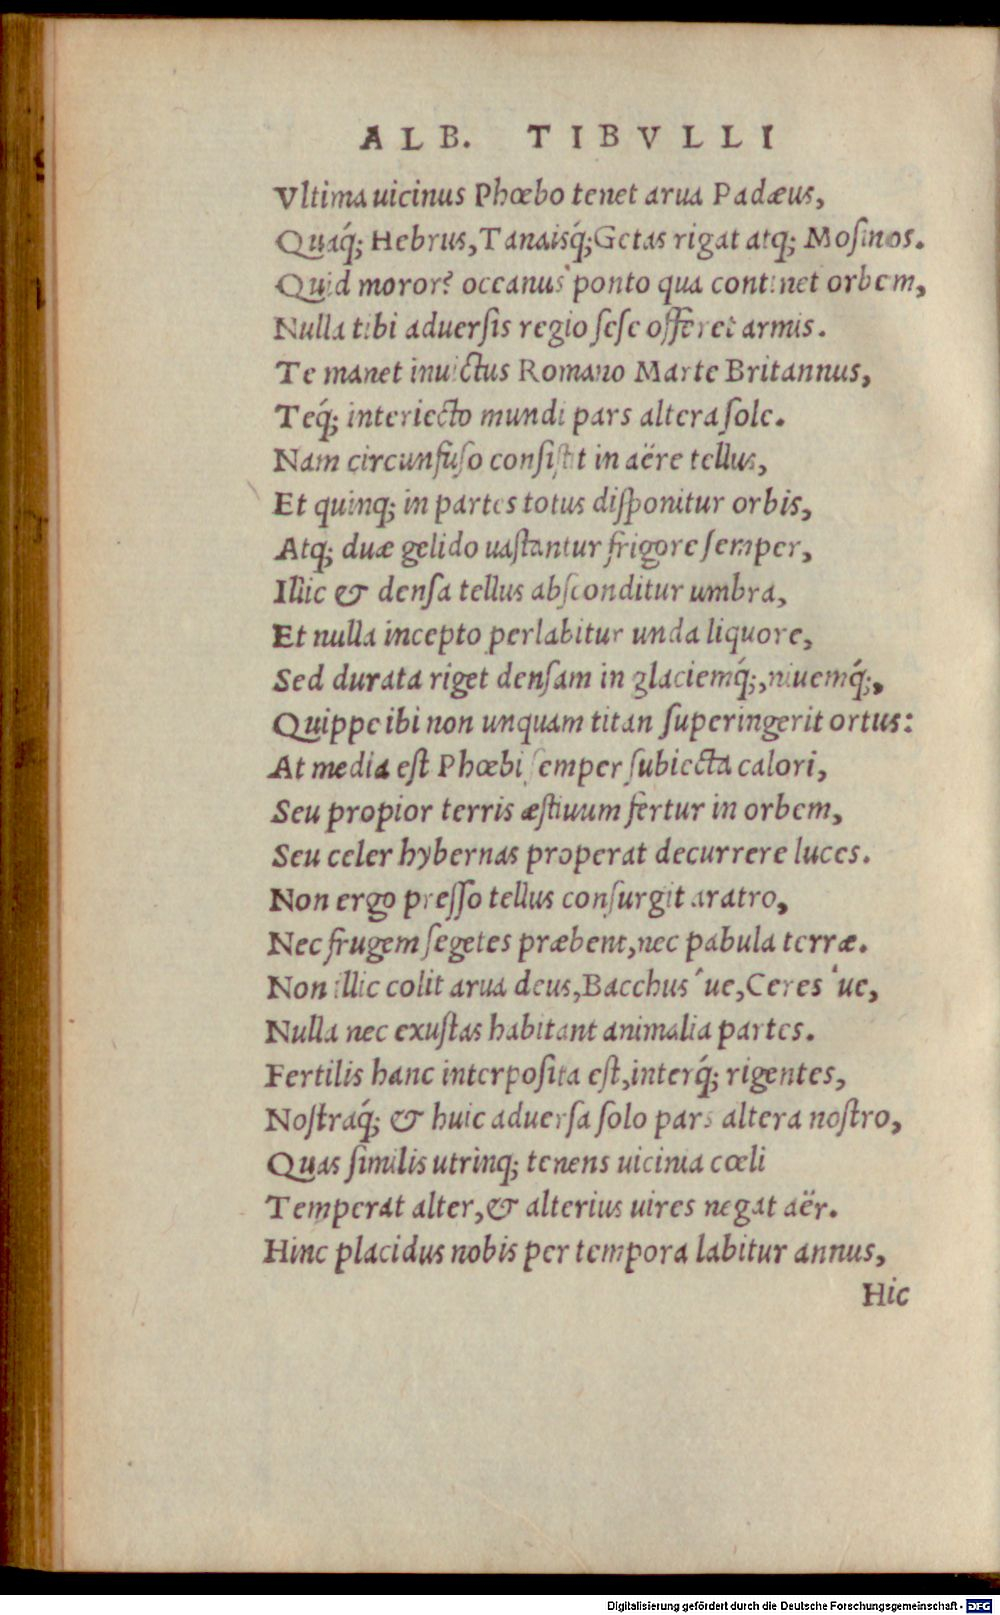 ALB. TIBVLLI
Vltima uicinus Phœbo tenet arua Padæus,
Quaq́; Hebrus, Tanaisq́; Getas rigat atq; Mosinos.
Quid moror? oceanus ponto qua continet orbem,
Nulla tibi aduersis regio sese offeret armis.
Te manet inuictus Romano Marte Britannus,
Teq́; interiecto mundi pars altera sole.
Nam circunfuso consistit in aëre tellus,
Et quinq; in partes totus disponitur orbis,
Atq; duæ gelido uastantur frigore semper,
Illic & densa tellus absconditur umbra,
Et nulla incepto perlabitur unda liquore,
Sed durata riget densam in glaciemq́;, niuemq́;,
Quippe ibi non unquam titan superingerit ortus:
At media est Phœbi semper subiecta calori,
Seu propior terris æstiuum fertur in orbem,
Seu celer hybernas properat decurrere luces.
Non ergo presso tellus consurgit aratro,
Nec frugem segetes præbent, nec pabula terræ.
Non illic colit arua deus, Bacchus 'ue, Ceres 'ue,
Nulla nec exustas habitant animalia partes.
Fertilis hanc interposita est, interq́; rigentes,
Nostraq́; & huic aduersa solo pars altera nostro,
Quas similis utrinq; tenens uicinia cœli
Temperat alter, & alterius uires negat aër.
Hinc placidus nobis per tempora labitur annus,
Hic
Digitalisierung gefördert durch die Deutsche Forschungsgemeinschaft - DFG